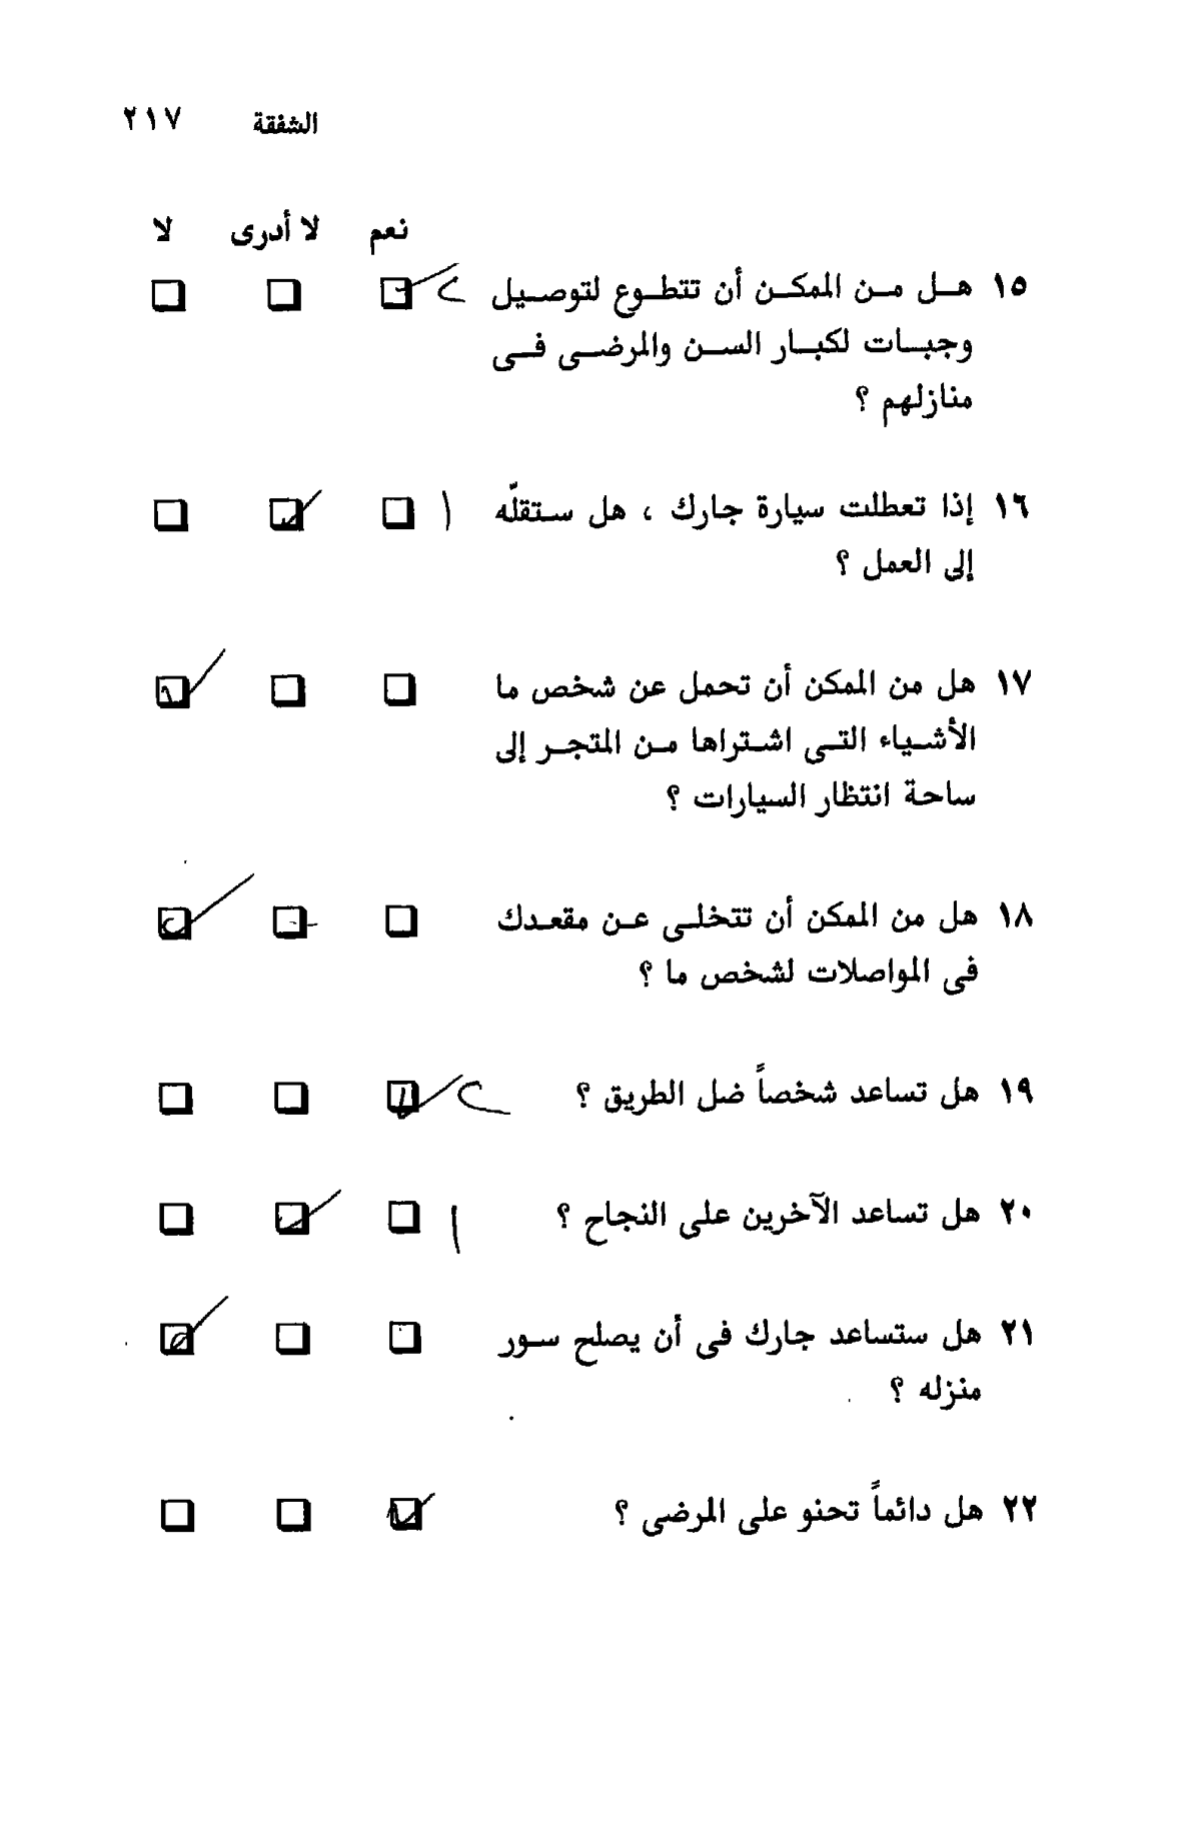 الشفقة ٢١٧
نعم لا أدرى لا
١٥ هل من الممكن أن تتطوع لتوصيل
وجبات لكبار السن والمرضى فى
منازلهم ؟
١٦ إذا تعطلت سيارة جارك ، هل ستقلّه
إلى العمل ؟
١٧ هل من الممكن أن تحمل عن شخص ما
الأشياء التى اشتراها من المتجر إلى
ساحة انتظار السيارات ؟
١٨ هل من الممكن أن تتخلى عن مقعدك
فى المواصلات لشخص ما ؟
١٩ هل تساعد شخصاً ضل الطريق ؟
٢٠ هل تساعد الآخرين على النجاح ؟
٢١ هل ستساعد جارك فى أن يصلح سور
منزله ؟
٢٢ هل دائماً تحنو على المرضى ؟